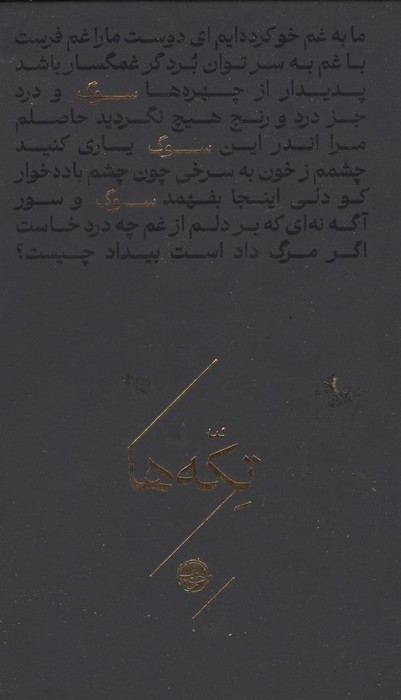 ما به غم خو کرده‌ایم ای دوست ما را غم فرست
با غم به سر توان بُرد گر غمگسار باشد
پدیدار از چهره‌ها سوگ و درد
جز درد و رنج هیچ نگردید حاصلم
مرا اندر این سوگ یاری کنید
چشمم ز خون به سرخی چون چشم باده‌خوار
کو دلی اینجا بفهمد سوگ و سور
آگه نه‌ای که بر دلم از غم چه درد خاست
اگر مرگ داد است بیداد چیست؟
تکّه‌ها